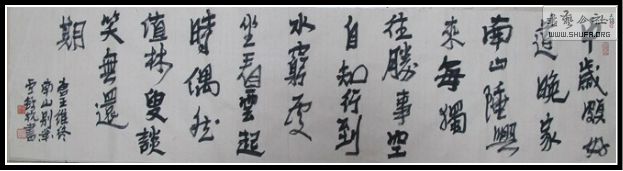 中歲頗好
道晚家
南山陲興
來每獨
往勝事空
自知行到
水窮處
坐看雲起
時偶然
值林叟談
笑無還
期
唐王維終
南山別業
書藝公社
WWW.SHUFA.ORG